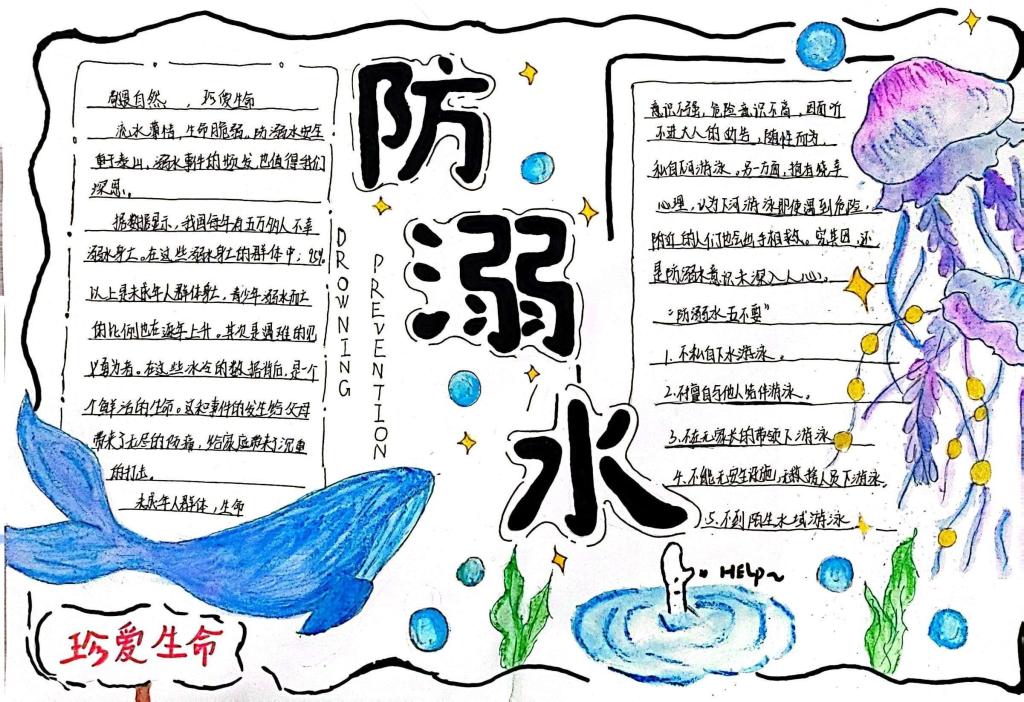 敬畏自然，珍爱生命
流水薄情，生命脆弱。防溺水安全
重于泰山，溺水事件的频发，也值得我们
深思。
据数据显示，我国每年有五万余人不幸
溺水身亡。在这些溺水身亡的群体中；95%
以上是未成年人群体身亡，青少年溺水而亡
的比例也在逐年上升。其次是遇难的见
义勇为者。在这些冰冷的数据背后，是一个
个鲜活的生命。这种事件的发生给父母
带来了无尽的伤痛，给家庭带来了沉重
的打击。
未成年人群体，生命
珍爱生命
DROWNING
PREVENTION
防
溺
水
意识不强，危险意识不高，因而听
不进大人的劝告，随性而为，
私自下河游泳。另一方面，抱有侥幸
心理，认为下河游泳即使遇到危险，
附近的人们也会出手相救。究其因，还
是防溺水意识未深入人心。
“防溺水五不要”
1. 不私自下水游泳。
2. 不擅自与他人结伴游泳。
3. 不在无家长的带领下游泳
4. 不能无安全设施，无救援人员下游泳。
5. 不到陌生水域游泳
HELP~